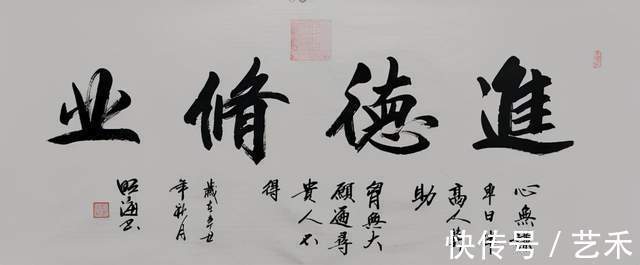 進德脩业
心無謙
卑日
高人
助
胷無大
願遍尋
貴人不
得
歲在辛丑
年秋月
昭海书
快传号／艺禾